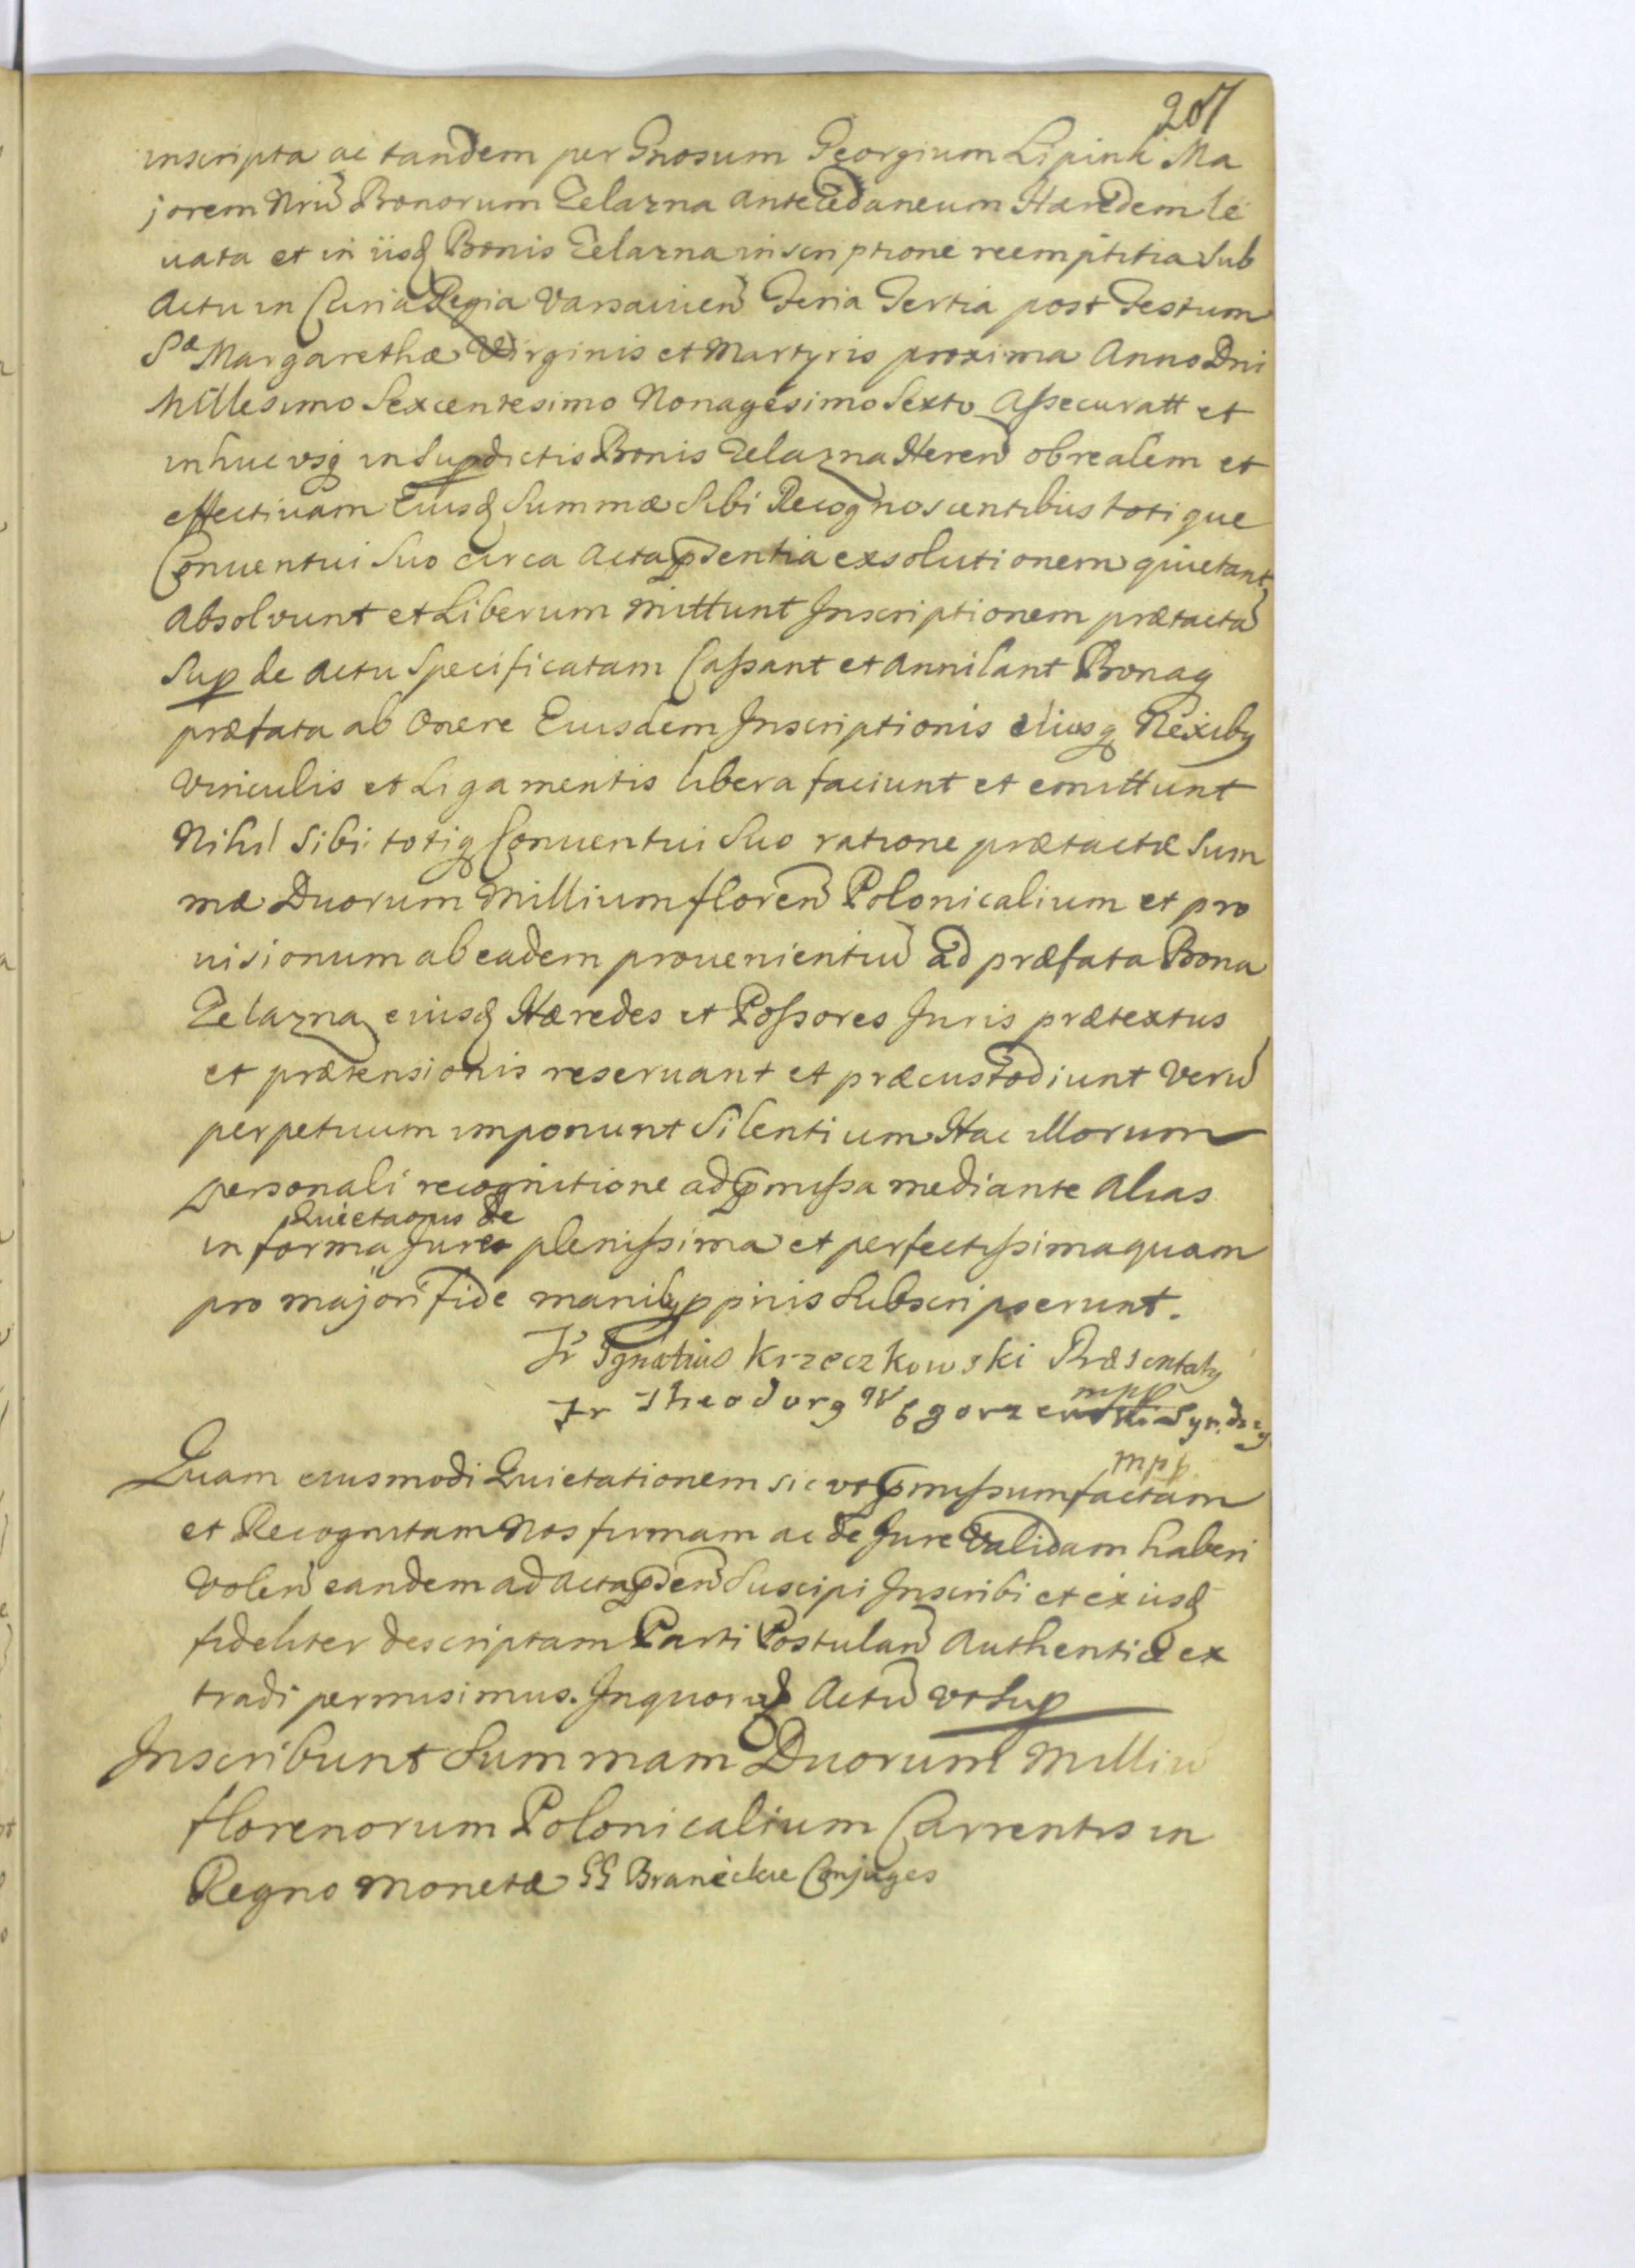 207
inscripta ac tandem per Gnosum Georgium Lipinki Ma
jorem Nrũ Bonorum Zelazna antecedaneum Hæredem le
uata et in iisq Bonis Zelazna inscriptione reemptitia Sub
Actu in Curia Regia Varsauien Feria Tertia post Festum
Sæ Margarethæ Virginis et Martyris proxima Anno Dni
Millesimo Sexcentesimo Nonagesimo Sexto Aßecuratt et
inhuc usq in Supdictis Bonis Zelazna Heren ob realem et
effectiuam Eiusq Summæ Sibi Recognoscentibus totique
Conuentui Suo circa Acta pntia exsolutionem quietant
Absoluunt et Liberum mittunt Inscriptionem prætactã
Sup de actu Specificatam Caßant et Annilant Bonaq
præfata ab Onere Eiusdem Inscriptionis eiusq Nexiby
Vinculis et Ligamentis libera faciunt et emittunt
Nihil Sibi totiq Conuentui Suo ratione prætactæ Sum
mæ Duorum Millium floren Polonicalium et pro
uisionum ab eadem prouenientiũ ad præfata Bona
Zelazna eiusq Hæredes et Poßores Juris prætextus
et prætensionis reseruant et præcustodiunt Verũ
perpetuum imponunt Silentium Hac illorum
personali recognitione ad pmißa mediante Alias
Quietaonis de
in forma Jure plenißima et perfectißima quam
pro majori fide maniby ppriis Subscripserunt.
Fr Ignatius Krzeczkowski Præsentaty
mpp
Fr Theodorg Syndicg
mpp
Quam eiusmodi Quietationem sic vt pmißum factam
et Recognitam Nos firmam ac de Jure Validam haberi
Volen eandem ad acta pnt Suscipi Inscribi et ex iisq
fideliter descriptam Parti Postulan Authenticæ ex
tradi permisimus. In quorũ Actũ vt Sup
Inscribunt Summam Duorum Milliũ
florenorum Polonicalium Currentis in
Regno Monetæ GG Branickie Conjuges